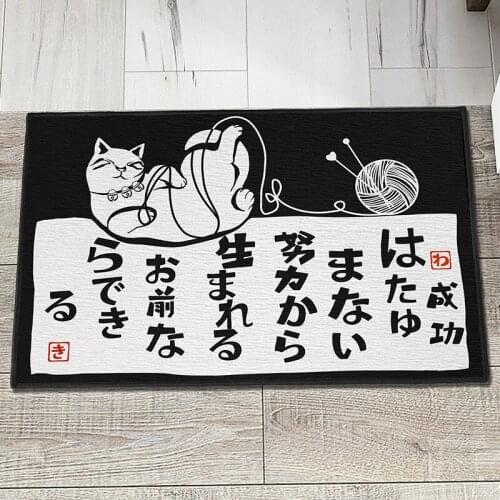 わ
成功
はたゆ
まない
努力から
生まれる
お前な
らでき
る
き